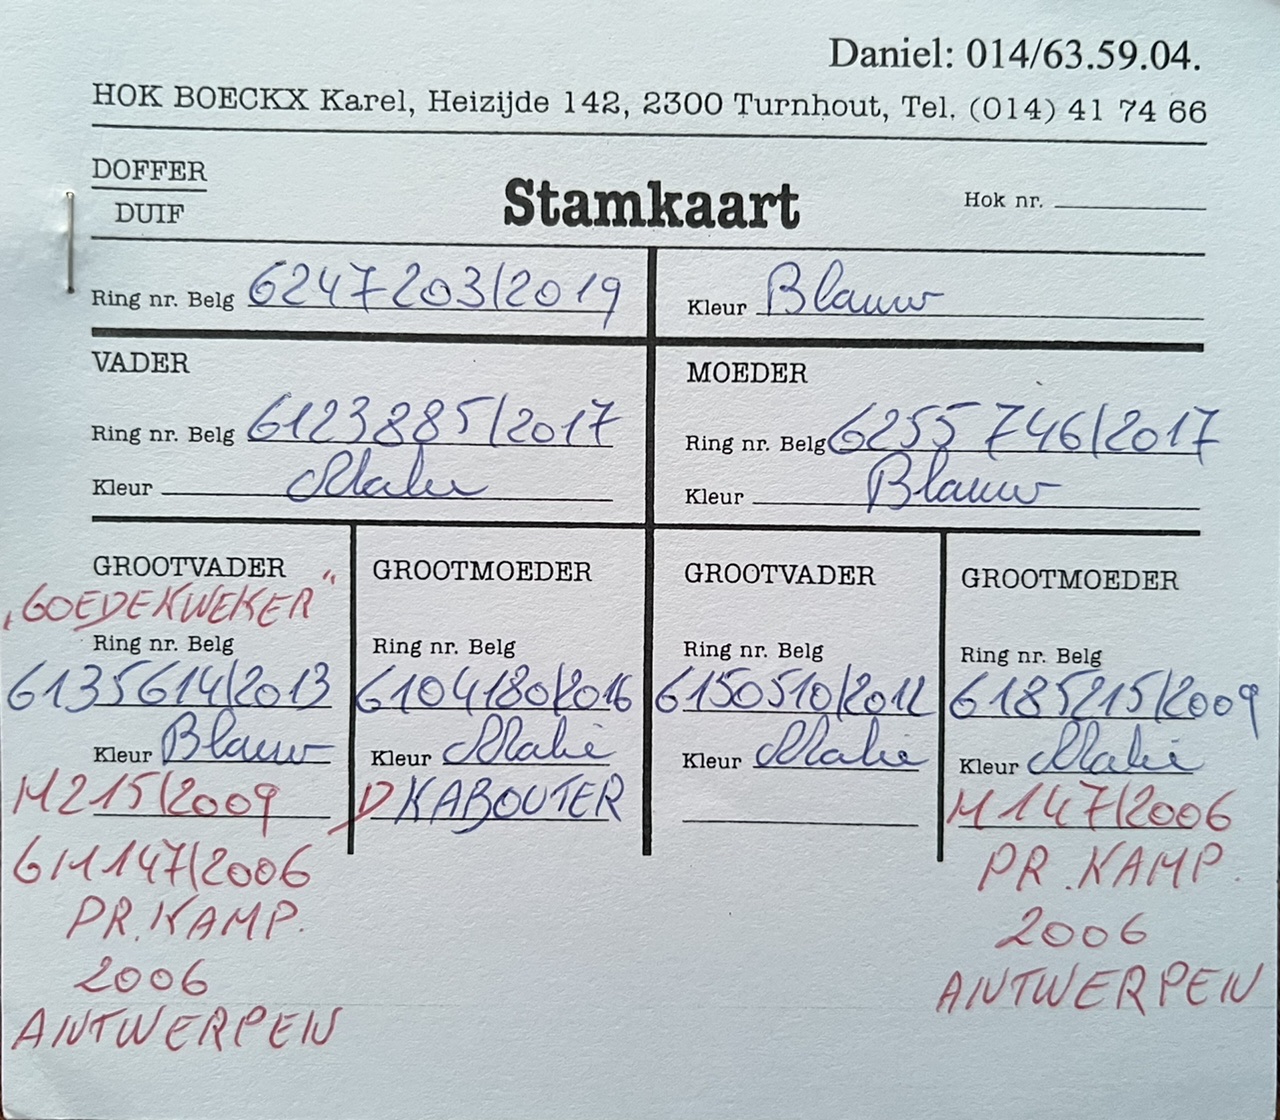 Daniel: 014/63.59.04.
HOK BOECKX Karel, Heizijde 142, 2300 Turnhout, Tel. (014) 41 74 66
DOFFER
DUIF
Stamkaart
Hok nr.
Ring nr. Belg 6247203/2019
Kleur Blauw
VADER
Ring nr. Belg 6123885/2017
Kleur
MOEDER
Ring nr. Belg 6255746/2017
Kleur Blauw
GROOTVADER
"GOEDEKWEKER"
Ring nr. Belg
6135614/2013
Kleur Blauw
M215/2009
GM147/2006
PR.KAMP.
2006
ANTWERPEN
GROOTMOEDER
Ring nr. Belg
6104180/2016
Kleur
D KABOUTER
GROOTVADER
Ring nr. Belg
6150510/2012
Kleur
GROOTMOEDER
Ring nr. Belg
6185215/2009
Kleur
M147/2006
PR.KAMP.
2006
ANTWERPEN